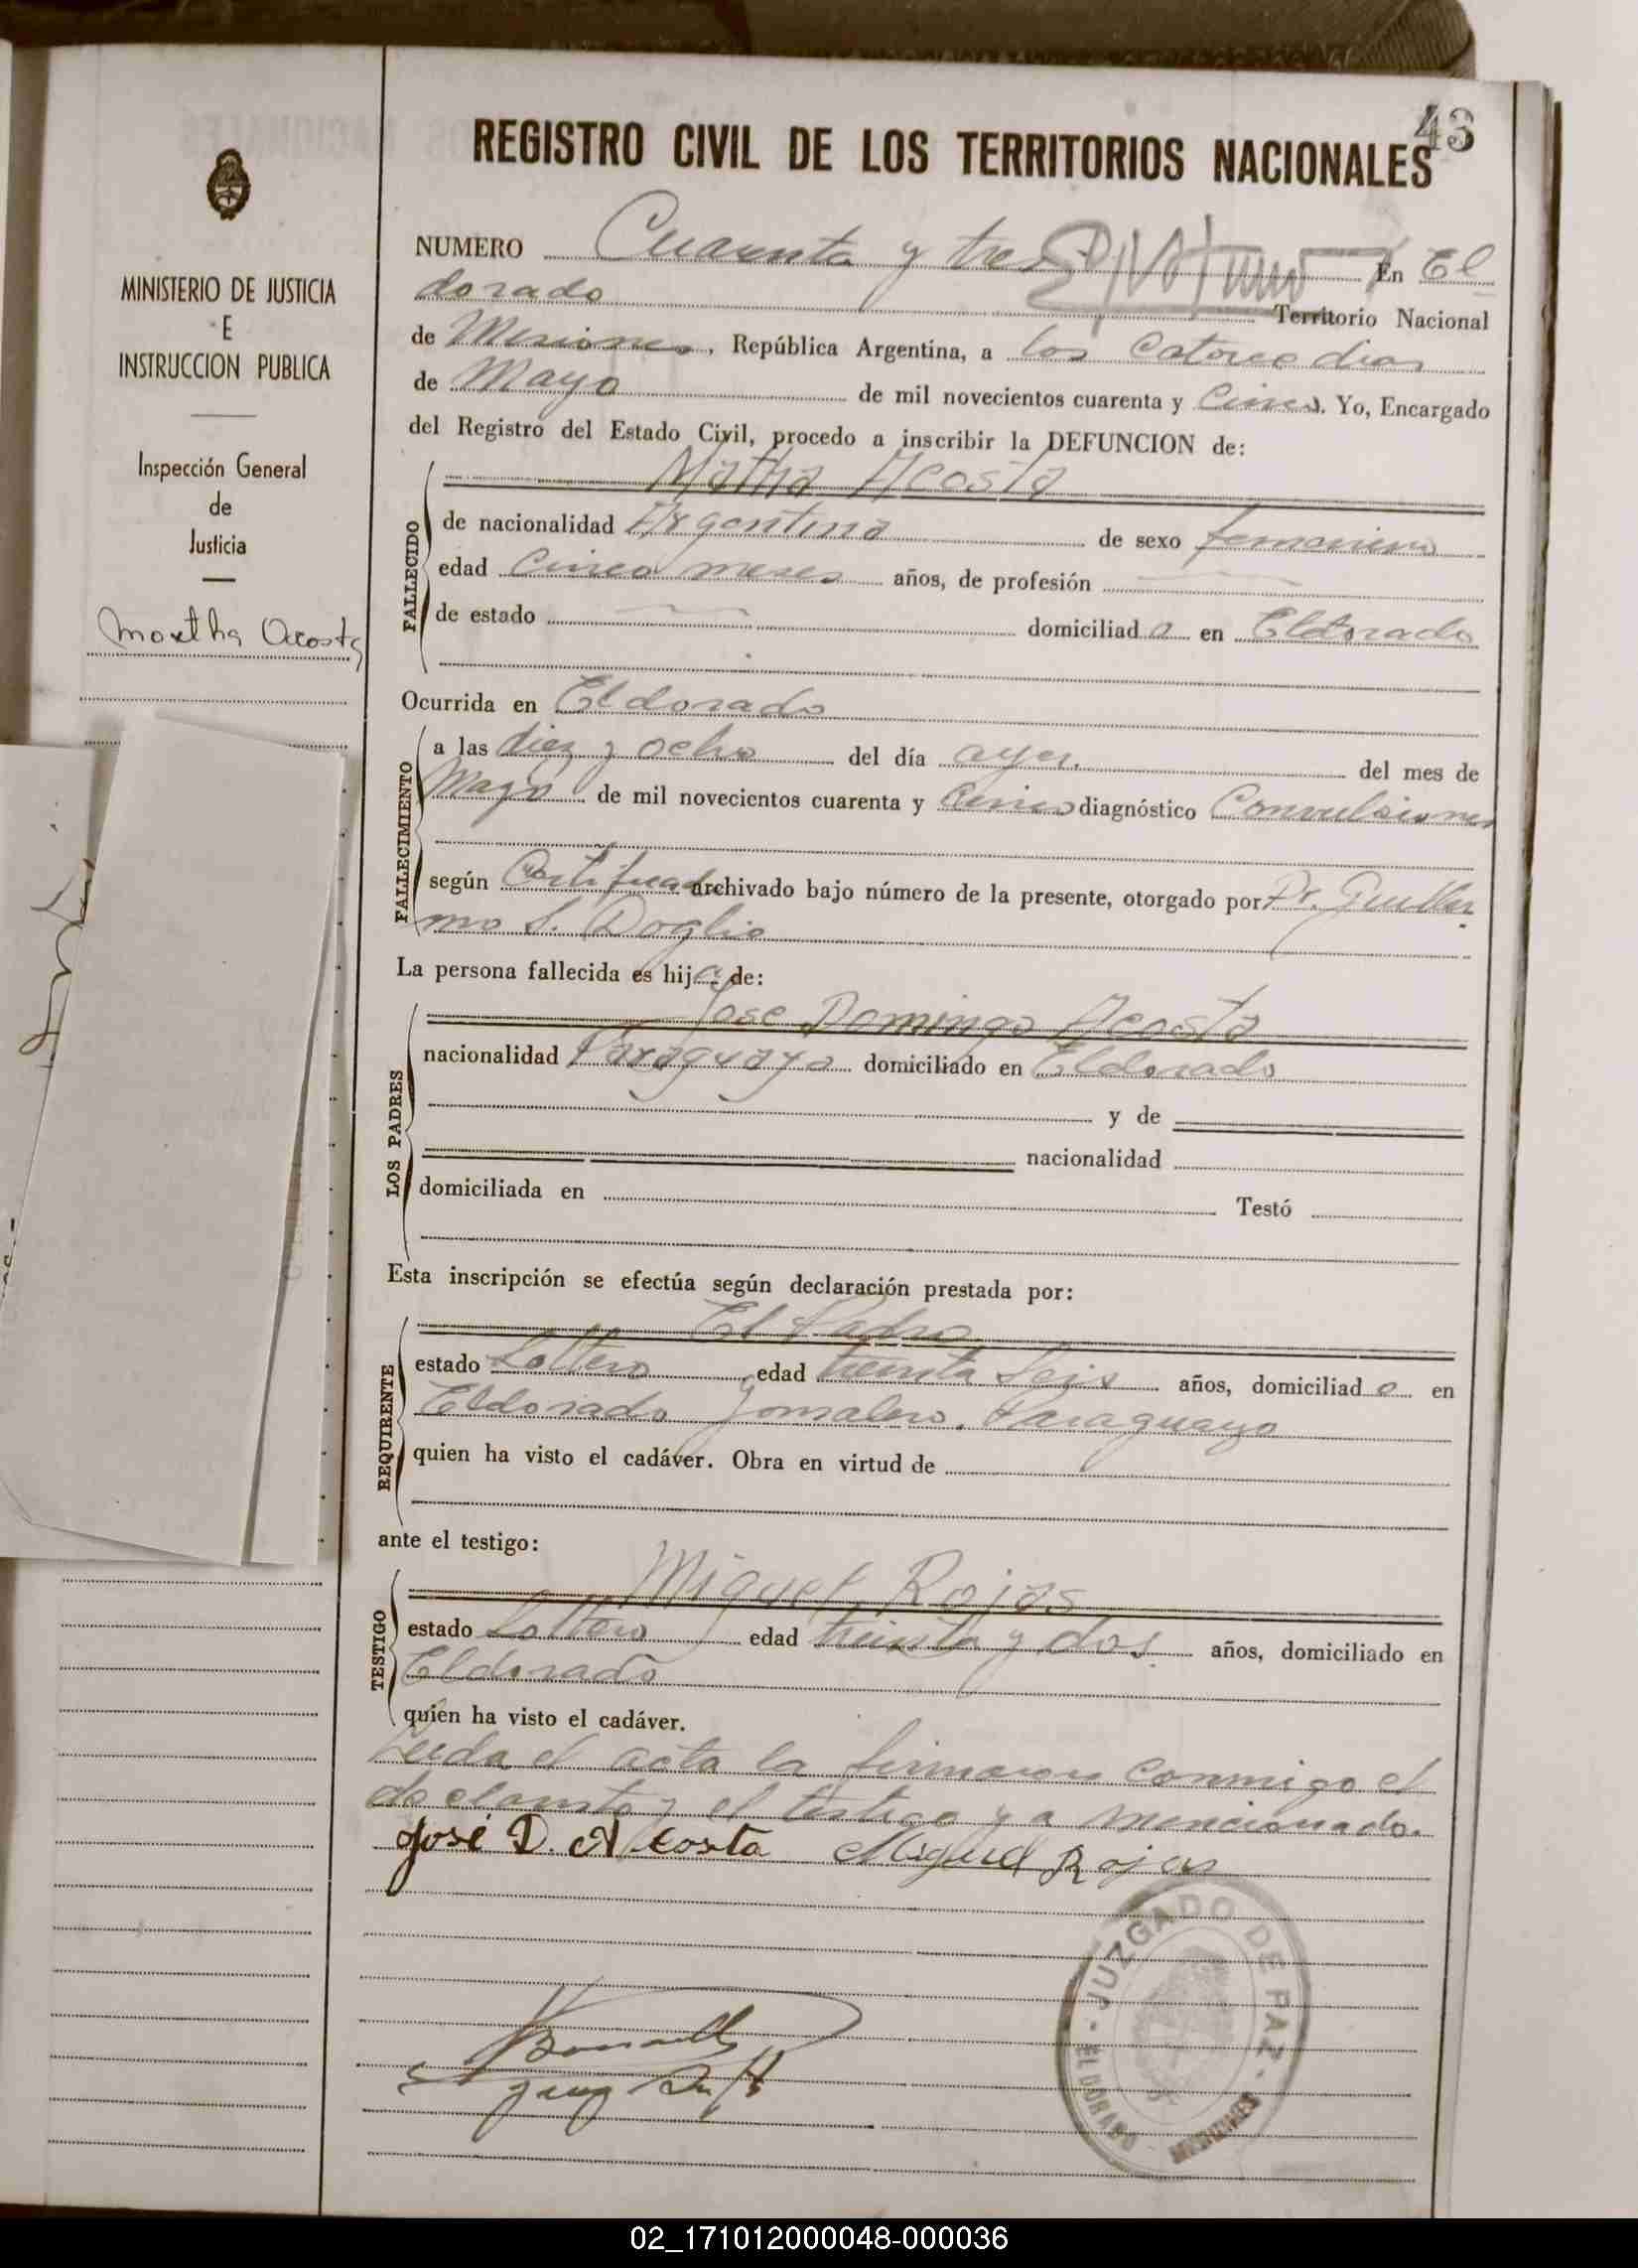 43
REGISTRO CIVIL DE LOS TERRITORIOS NACIONALES
MINISTERIO DE JUSTICIA
E
INSTRUCCION PUBLICA
Inspección General
de
Justicia
Martha Acosta
NUMERO Cuarenta y tres En El
dorado Territorio Nacional
de Misiones, República Argentina, a los Catorce dias
de Mayo de mil novecientos cuarenta y Cinco. Yo, Encargado
del Registro del Estado Civil, procedo a inscribir la DEFUNCION de:
FALLECIDO
Matha Acosta
de nacionalidad Argentina de sexo femenino
edad Cinco meses años, de profesión
de estado domiciliad a en Eldorado
Ocurrida en Eldorado
FALLECIMIENTO
a las diez y ocho del día ayer. del mes de
Mayo de mil novecientos cuarenta y Cinco diagnóstico Convulsiones
según Certificado archivado bajo número de la presente, otorgado por Dr. Guiller
mo S. Doglio
La persona fallecida es hija de:
LOS PADRES
Jose Domingo Acosta
nacionalidad Paraguaya domiciliado en Eldorado
y de
nacionalidad
domiciliada en Testó
Esta inscripción se efectúa según declaración prestada por:
REQUIRENTE
El Padre
estado Soltero edad treinta Seis años, domiciliad o en
Eldorado Jornalero. Paraguayo
quien ha visto el cadáver. Obra en virtud de
ante el testigo:
TESTIGO
Miguel Rojas
estado Soltero edad treinta y dos años, domiciliado en
Eldorado
quien ha visto el cadáver.
Leida el acta la firmaron conmigo el
declarante y el testigo ya mencionado.
José D. Acosta Miguel Rojas
JUZGADO DE PAZ - ELDORADO - MISIONES
02_171012000048-000036